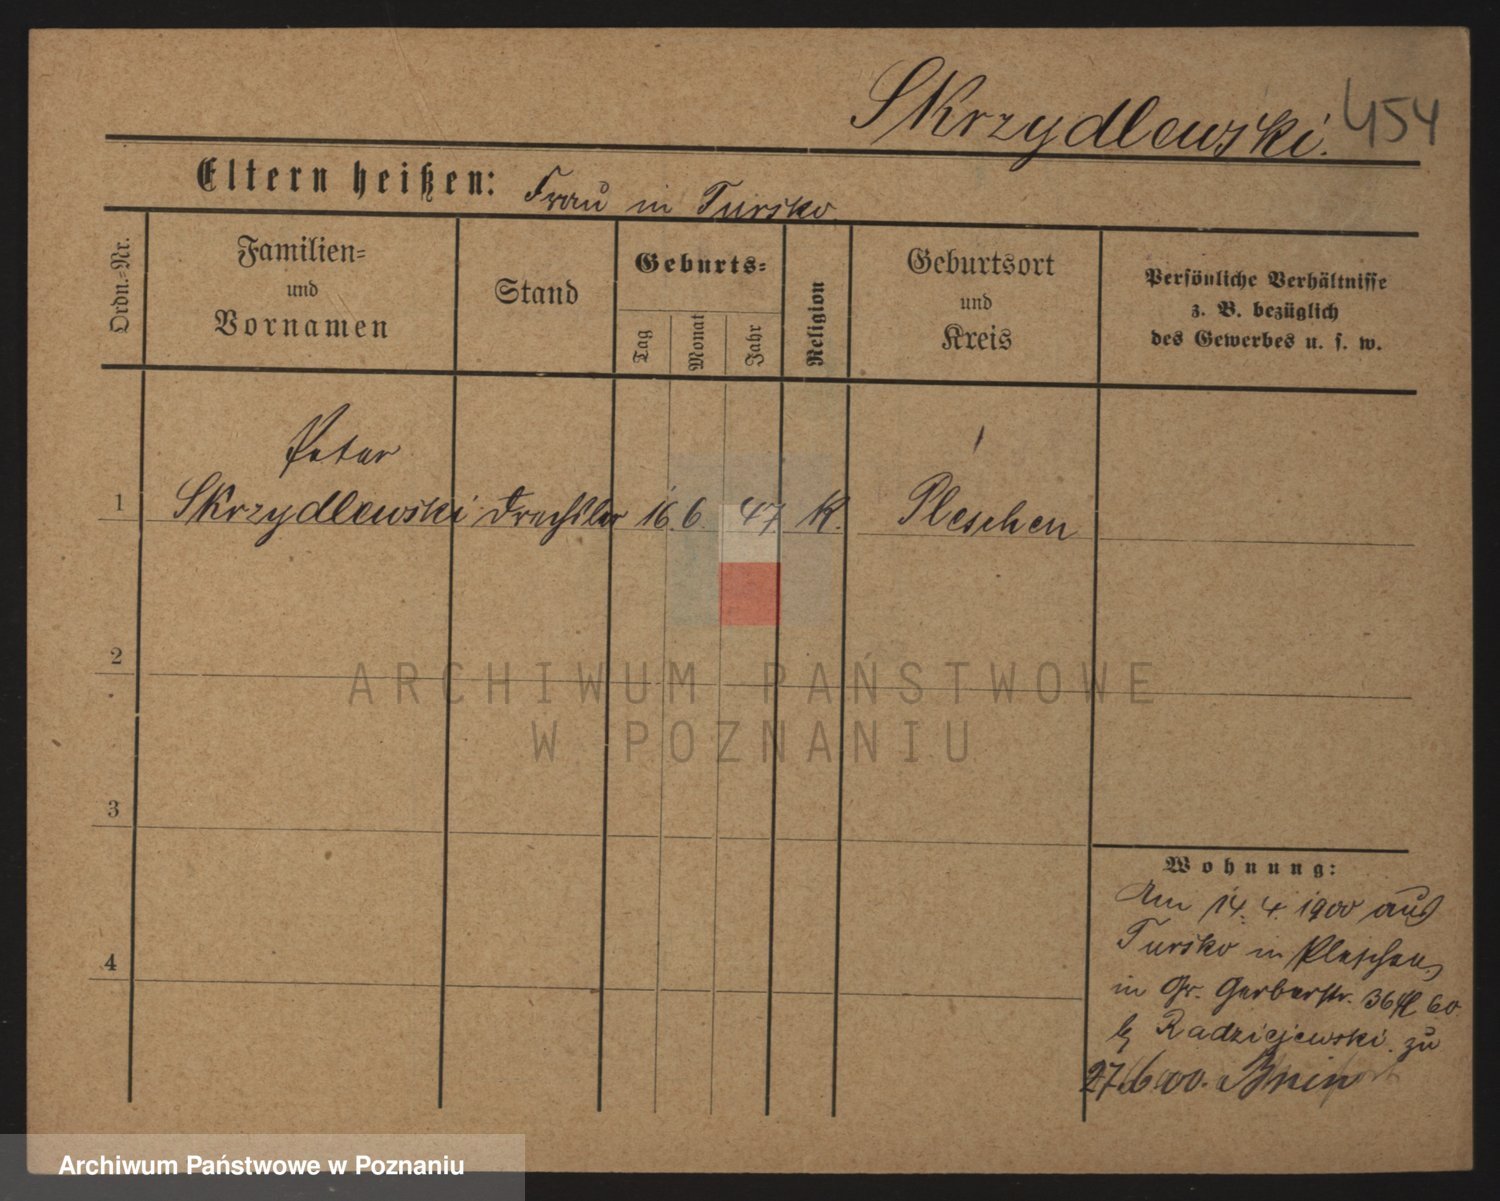 Skrzydlewski. 454
Eltern heißen: Frau in Tursko
Ordn.=Nr.
Familien=
und
Vornamen
Stand
Geburts=
Tag
Monat
Jahr
Religion
Geburtsort
und
Kreis
Persönliche Verhältnisse
z. B. bezüglich
des Gewerbes u. s. w.
Peter
1 Skrzydlewski Drechsler 16. 6. 47. K. Pleschen
2
3
4
Wohnung:
Am 14. 4. 1900 aus
Tursko in Pleschen,
in Gr. Gerberstr. 36 60.
b Radziejewski. zu
27/6 00. Bnin
ARCHIWUM PAŃSTWOWE
W POZNANIU
Archiwum Państwowe w Poznaniu